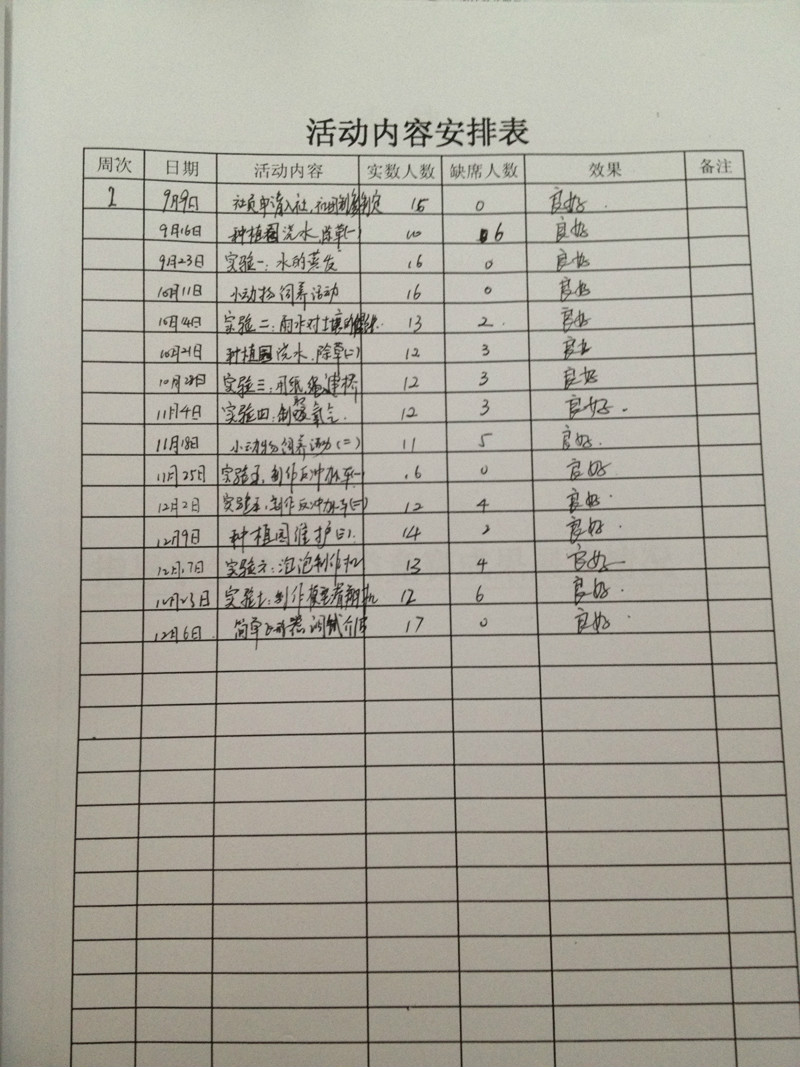 活动内容安排表
周次 日期 活动内容 实数人数 缺席人数 效果 备注
1 9月9日 社员申请入社，社团制度制定 15 0 良好
9月16日 种植园浇水、除草(一) 10 6 良好
9月23日 实验一：水的蒸发 16 0 良好
10月11日 小动物饲养活动 16 0 良好
10月14日 实验二：雨水对土壤的 13 2 良好
10月21日 种植园浇水、除草(二) 12 3 良好
10月28日 实验三：用纸 建桥 12 3 良好
11月4日 实验四：制 氧气 12 3 良好
11月18日 小动物饲养活动(二) 11 5 良好
11月25日 实验五：制作反冲 车(一) 16 0 良好
12月2日 实验五：制作反冲 车(二) 12 4 良好
12月9日 种植园维护(三) 14 2 良好
12月17日 实验六：泡泡制作 13 4 良好
12月23日 实验七：制作模型 机 12 6 良好
12月6日 简单 调试介绍 17 0 良好